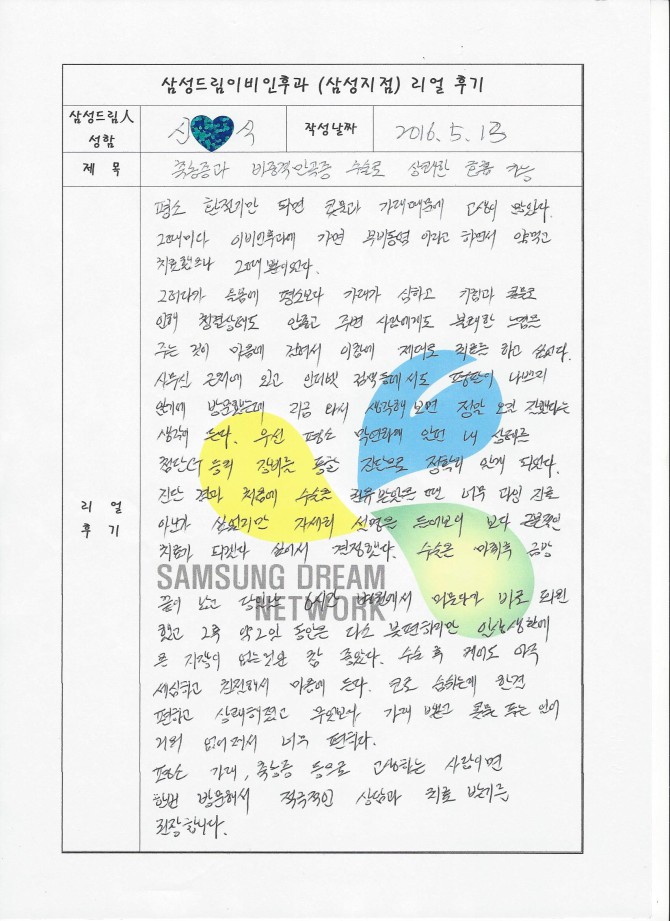 삼성드림이비인후과 (삼성지점) 리얼 후기
삼성드림人
성함
신 식
작성날짜
2016. 5. 13
제 목
축농증과 비중격만곡증 수술로 상쾌한 호흡 가능
리 얼
후 기
평소 환절기만 되면 콧물과 가래때문에 고생이 많았다.
그때마다 이비인후과에 가면 부비동염 이라고 하면서 약먹고
치료했으나 그때 뿐이었다.
그러다가 올봄에 평소보다 가래가 심하고 기침과 콧물로
인해 청결상태도 안좋고 주변 사람에게도 불쾌한 느낌을
주는 것이 마음에 걸려서 이참에 제대로 치료를 하고 싶었다.
사무실 근처에 있고 인터넷 검색등에서도 평판이 나쁘지
않기에 방문했는데 지금 와서 생각해 보면 정말 잘했다는
생각이 든다. 우선 평소 막연하게 알던 내 상태를
첨단CT 등의 장비를 통한 진단으로 정확히 알게 되었다.
진단 결과 처음에 수술을 권유 받았을 땐 너무 과잉 진료
아닌가 싶었지만 자세히 설명을 들어보니 보다 근본적인
치료가 되겠다 싶어서 결정했다. 수술은 마취후 금방
SAMSUNG DREAM
NETWORK
끝이 났고 당일날 6시간 병원에서 머물다가 바로 퇴원
했고 그후 약 2일 동안은 다소 불편하지만 일상생활에
큰 지장이 없는것은 참 좋았다. 수술 후 케어도 아주
세심하고 친절해서 마음에 든다. 코로 숨쉬는게 한결
편하고 상쾌해졌고 무엇보다 가래 뱉고 콧물 푸는 일이
거의 없어져서 너무 편하다.
평소 가래, 축농증 등으로 고생하는 사람이면
한번 방문해서 적극적인 상담과 치료 받기를
권장합니다.